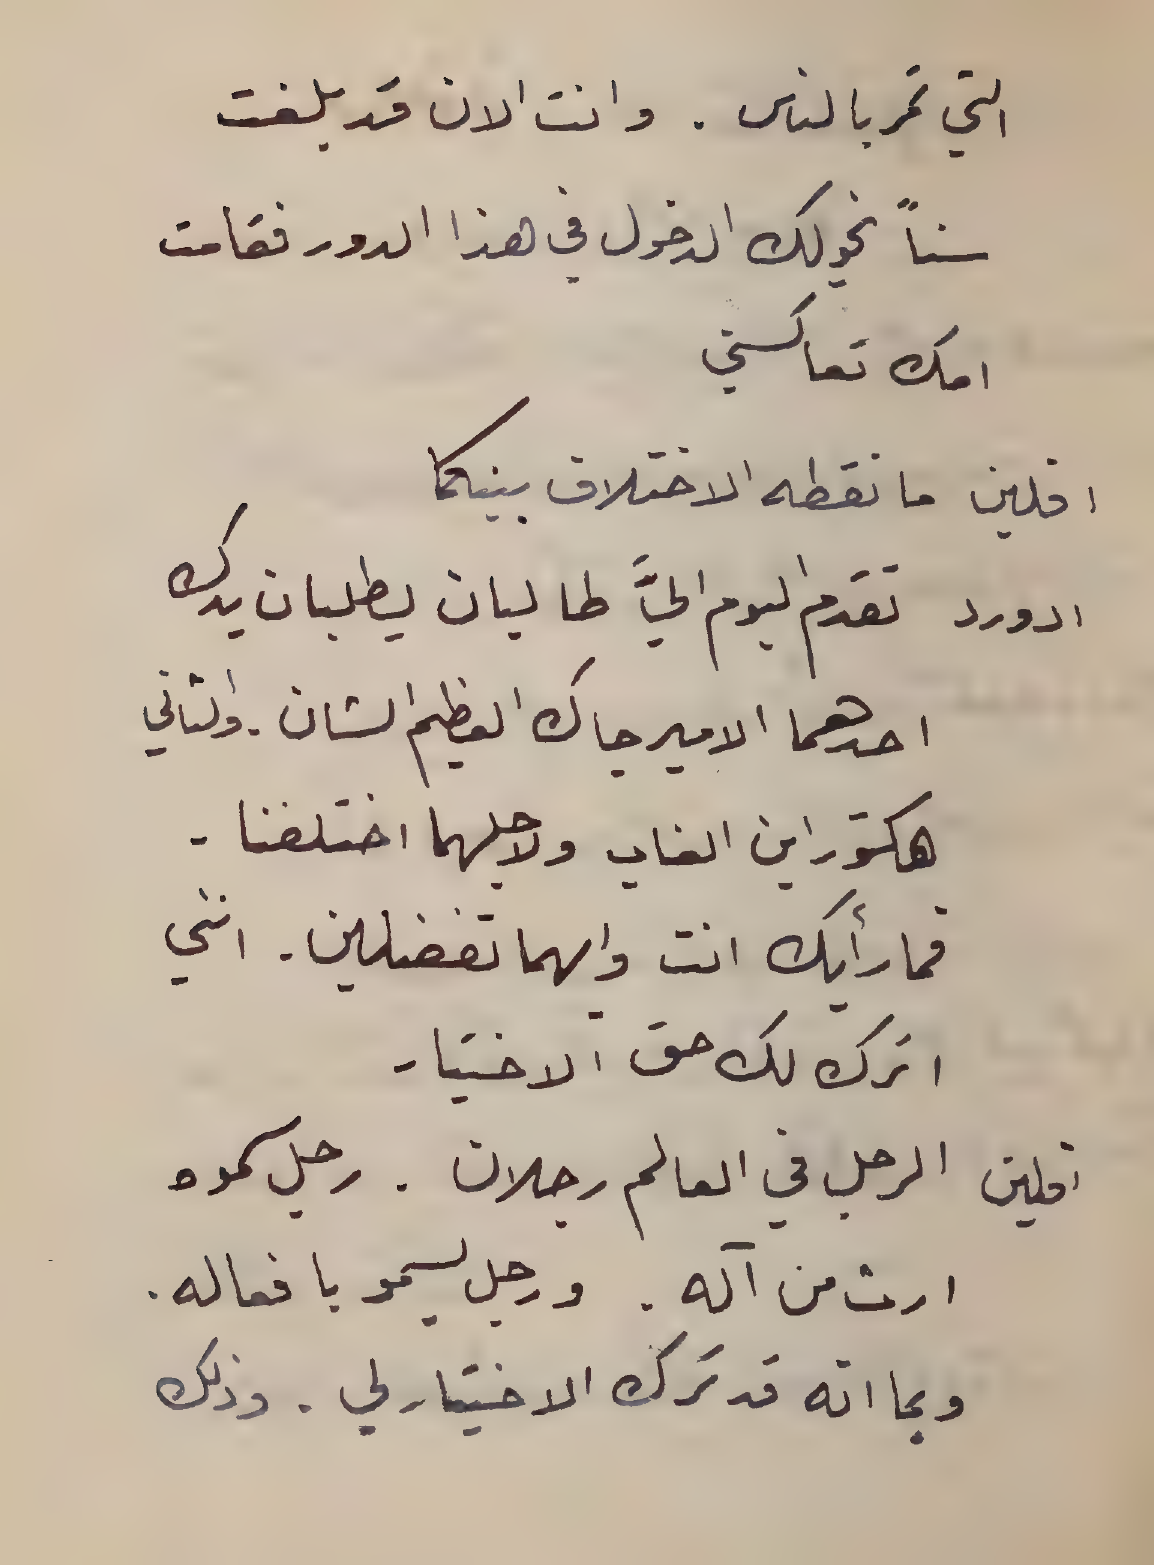 التي تمر بالناس . وانت الان قد بلغت
سناً تخولك الدخول في هذا الدور فقامت
امك تعاكسني
افلين ما نقطه الاختلاف بينكما
ادورد تقدم اليوم اليَّ طالبان يطلبان يدك
احدهما الامير جاك العظيم الشان . والثاني
هكتور ابن الغاب ولاجلهما اختلفنا -
فما رأيك انت وايهما تفضلين . انني
اترك لك حق الاختيار
افلين الرجل في العالم رجلان . رجل سموه
ارث من آله . ورجل يسمو بافعاله .
وبما انه قد ترك الاختيار لي . وذلك